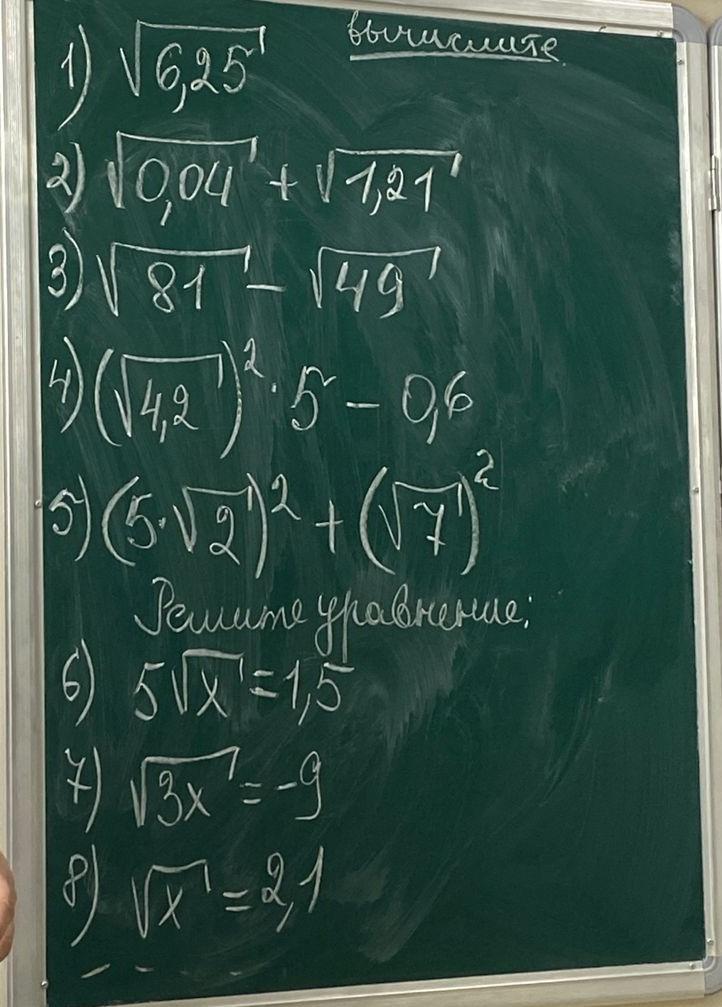 вычислите
1) √6,25
2) √0,04 + √1,21
3) √81 - √49
4) (√4,2)² · 5 - 0,6
5) (5·√2)² + (√7)²
Решите уравнение:
6) 5√x = 1,5
7) √3x = -9
8) √x = 2,1